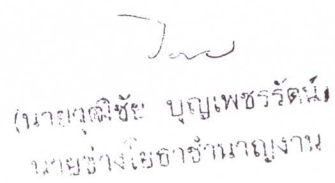 (นายวุฒิชัย บุญเพชรรัตน์)
นายช่างโยธาชำนาญงาน